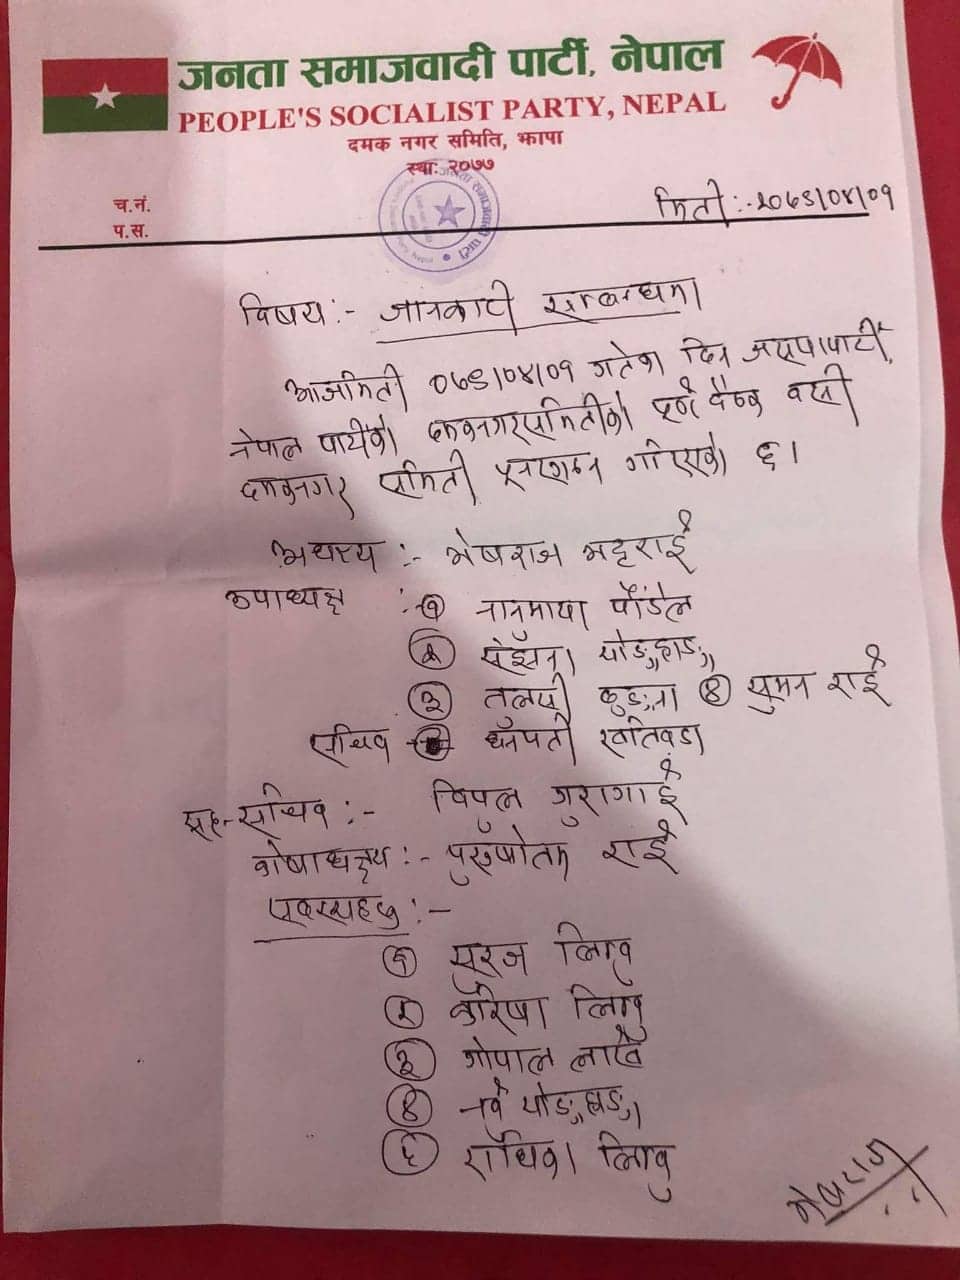 जनता समाजवादी पार्टी, नेपाल
PEOPLE'S SOCIALIST PARTY, NEPAL
दमक नगर समिति, झापा
स्था: २०७७
च.नं.
प.स.
मिती :- २०७९।०४।०१
विषय :- जानकारी सम्बन्धमा
आजमिती ०७९।०४।०१ गतेका दिन जसपापार्टी,
नेपाल पार्टीको दमकनगरसमितीको पूर्ण बैठक वसी
दमकनगर समिती पूनरगठन गरिएको छ।
अध्यक्ष्य :- मेषराज भट्टराई
उपाध्यक्ष :- १ नानमाया पौडेल
२ सेर्झना योङहाङ
३ तुलसी कुङना ४ सुमन राई
सचिव धनपती खतिवडा
सह-सचिव :- विपुल गुरागाई
कोषाध्यक्ष्य :- पुरुषोतम राई
सदस्यहरु :-
१ सुरज लिम्वु
२ करिषा लिम्वु
३ गोपाल लामि
४ नवै योङहाङ
५ राधिका लिम्वु
मेषराज